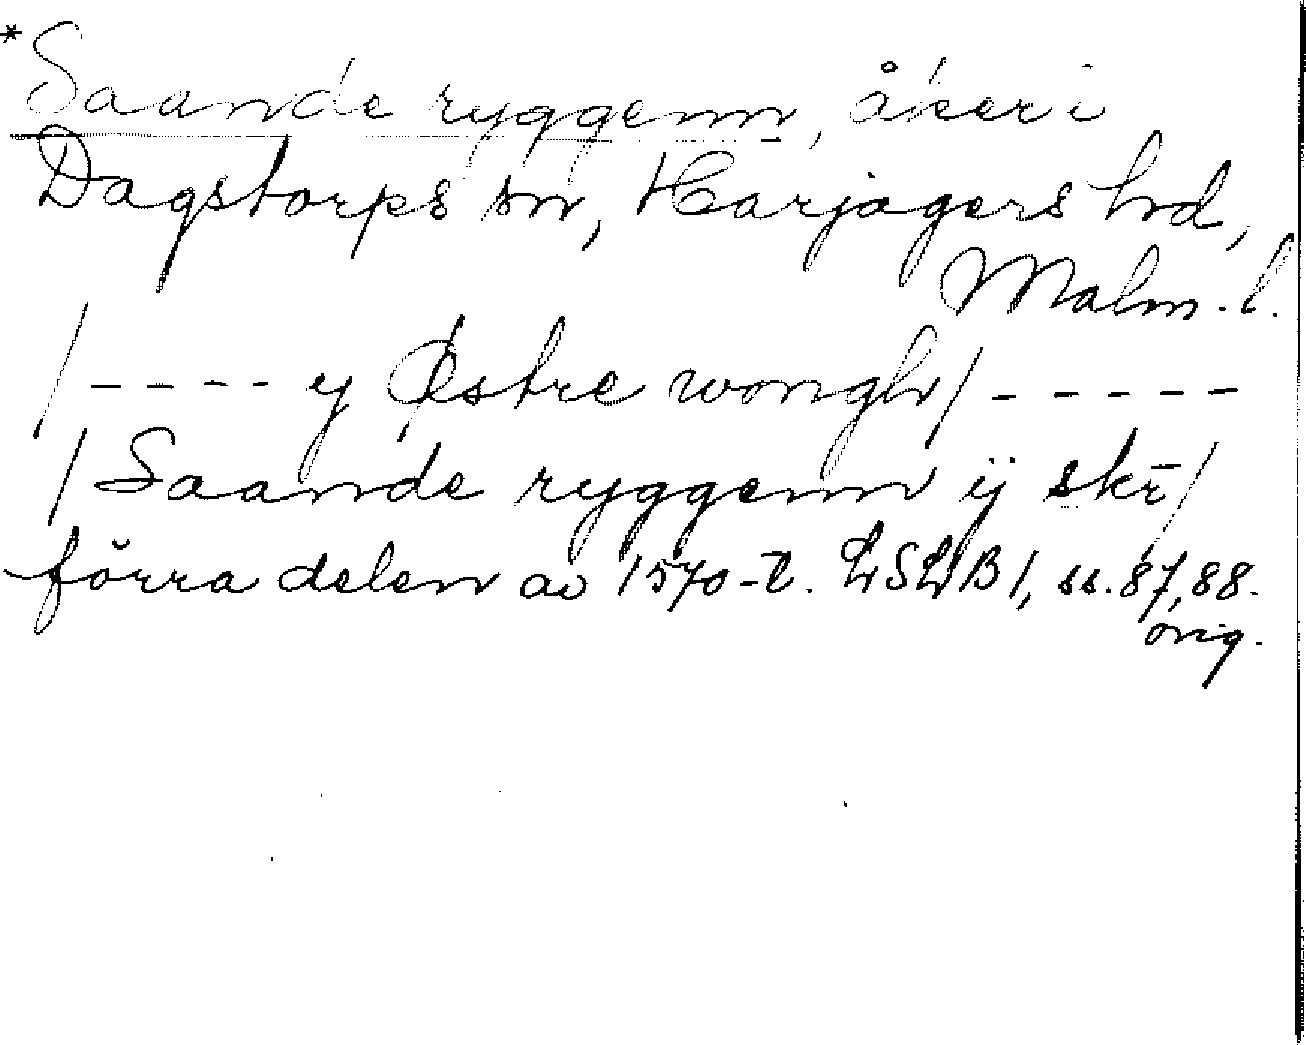 *Saande ryggenn, åker i
Dagstorps sn, Harjagers hd,
Malm. l.
/---- y Østre wongh/-----
/Saande ryggenn ij skr̄/
förra delen av 1570-t. LSLB1, ss. 87, 88.
orig.